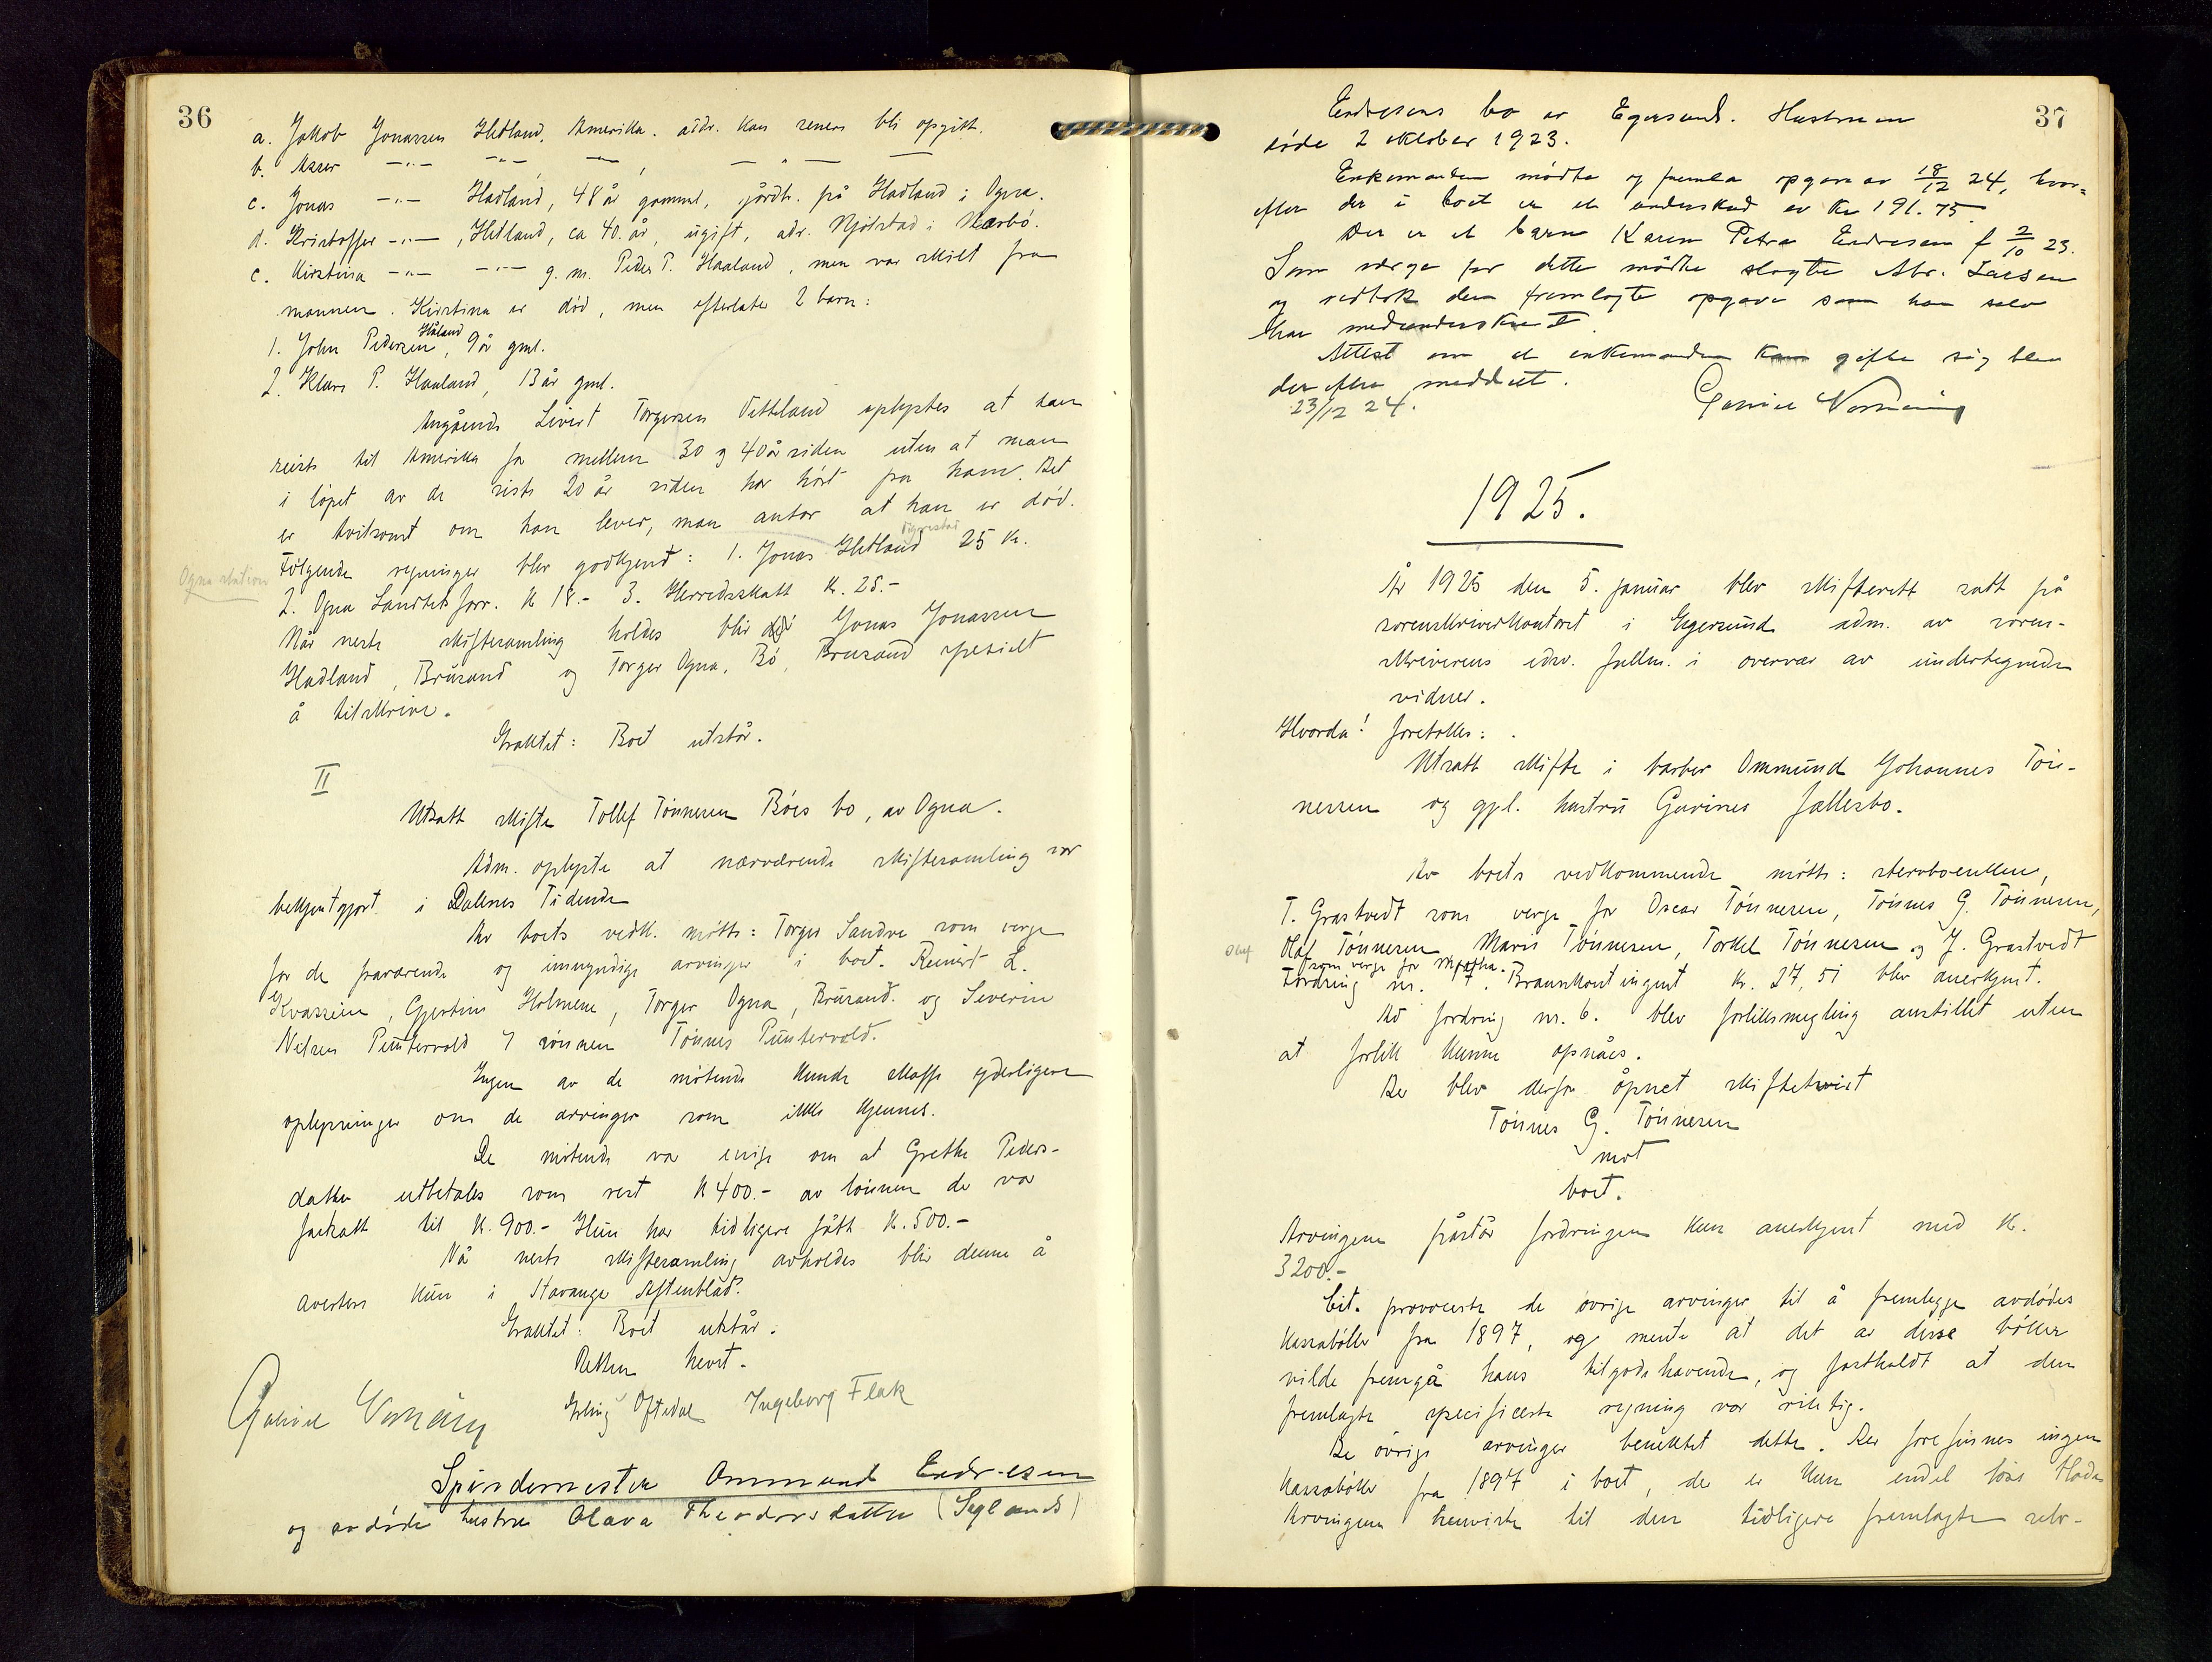 36
a. Jakob Jonassen Hetland, Amerika. addr. kan senere bli opgitt.
b. Asser —"— —"— —"—, — " — —
c. Jonas —"— Hadland, 48 år gammel, gårdb. på Hadland i Ogna.
d. Kristoffer —"—, Hetland, ca 40. år, ugift, adr. Njølstad i Nærbø.
e. Kirstina —"— —"— g. m. Peder P. Haaland, men var skilt fra
mannen. Kirstina er død, men efterlater 2 barn:
Håland
1. John Pedersen, 9 år gml.
2. Klara P. Haaland, 13 år gml.
Angående Sivert Torgersen Vetteland oplystes at han
reiste til Amerika for mellem 30 og 40 år siden uten at man
i løpet av de siste 20 år siden har hørt fra ham. Det
er tvilsomt om han lever, man antar at han er død.
Ogna station
Følgende regninger blev godkjent: 1. Jonas Hetland 25 kr.
2. Ogna Landhds forr. kr 18.- 3. Herredsskatt kr. 25.-
Når neste skiftesamling holdes blir Jonas Jonassen
Hadland, Brusand og Torger Ogna, Bø, Brusand spesielt
å tilskrive.
Graktet: Boet utstår.
II
Utsatt skifte Tollef Tønnesen Bøes bo, av Ogna.
Adm. oplyste at nærværende skiftesamling var
bekjentgjort i Dalenes Tidende
Av boets vedk. møtte: Torger Sandve som verge
for de fraværende og umyndige arvinger i boet. Reinert L.
Kvassheim, Gjertine Holmene, Torger Ogna, Brusand. og Severin
Nilsen Puntervold / sønnen Tønnes Puntervold.
Ingen av de møtende kunde skaffe yderligere
oplysninger om de arvinger som ikke kjennes.
De møtende var enige om at Grethe Peders-
datter utbetales som rest kr 400.- av lønnen der var
fastsatt til kr. 900.- Hun har tidligere fått kr. 500.-
Når neste skiftesamling avholdes blir denne å
avertere kun i Stavanger Aftenblad.
Graktet: Boet utstår.
Retten hevet.
Gabriel Ingeborg Fleck
Erling Oftedal
Spindemester Ommund Endresen
og avdøde hustru Olava Theodorsdatter (Seglends)
37
Endresens bo av Egersund. Hustruen
døde 2 oktober 1923.
Enkemanden mødte og fremla opgave av 18/12 24, hvor-
efter der i boet er et underskud av Kr 191.75.
Der er et barn Karen Petra Endresen f 2/10 23.
Som verge for dette mødte slagter Abr. Larsen
og vedtok den fremlagte opgave som han selv
har medunderskrevet.
Attest om at enkemanden kan gifte sig blev
derefter meddelt.
23/12 24. Gabriel
1925.
År 1925 den 5. januar blev skifterett satt på
sorenskriverkontoret i Egersund adm. av soren-
skriverens edsv. fullm. i overvær av undertegnede
vidner.
Hvorda! foretokes:
Utsatt skifte i barber Ommund Johannes Tøn-
nessen og gjpl. hustru Gurines fellesbo.
Av boets vedkommende møtte: stervboenken,
T. Grastvedt som verge for Oscar Tønnesen, Tønnes G. Tønnesen,
Oluf
Olaf Tønnesen, Marie Tønnesen, Torkel Tønnesen og J. Grastvedt
som verge for Martha.
Fordring nr. 7. Brannkontingent kr. 27,51 blev anerkjent.
Ad fordring nr. 6. blev forliksmegling anstillet uten
at forlik kunne opnåes.
Der blev derfor åpnet skiftetvist
Tønnes G. Tønnesen
mot
boet.
Arvingene påstår fordringen kun anerkjent med kr.
3200.-
Cit. provoserte de øvrige arvinger til å fremlegge avdødes
kassabøker fra 1897, og mente at det av disse bøker
vilde fremgå hans tilgodehavende, og fastholdt at den
fremlagte specifiserte regning var riktig.
De øvrige arvinger benektet dette. Der forefinnes ingen
kassabøker fra 1897 i boet, der er kun endel løse blade
Arvingene henviste til den tidligere fremlagte selv-